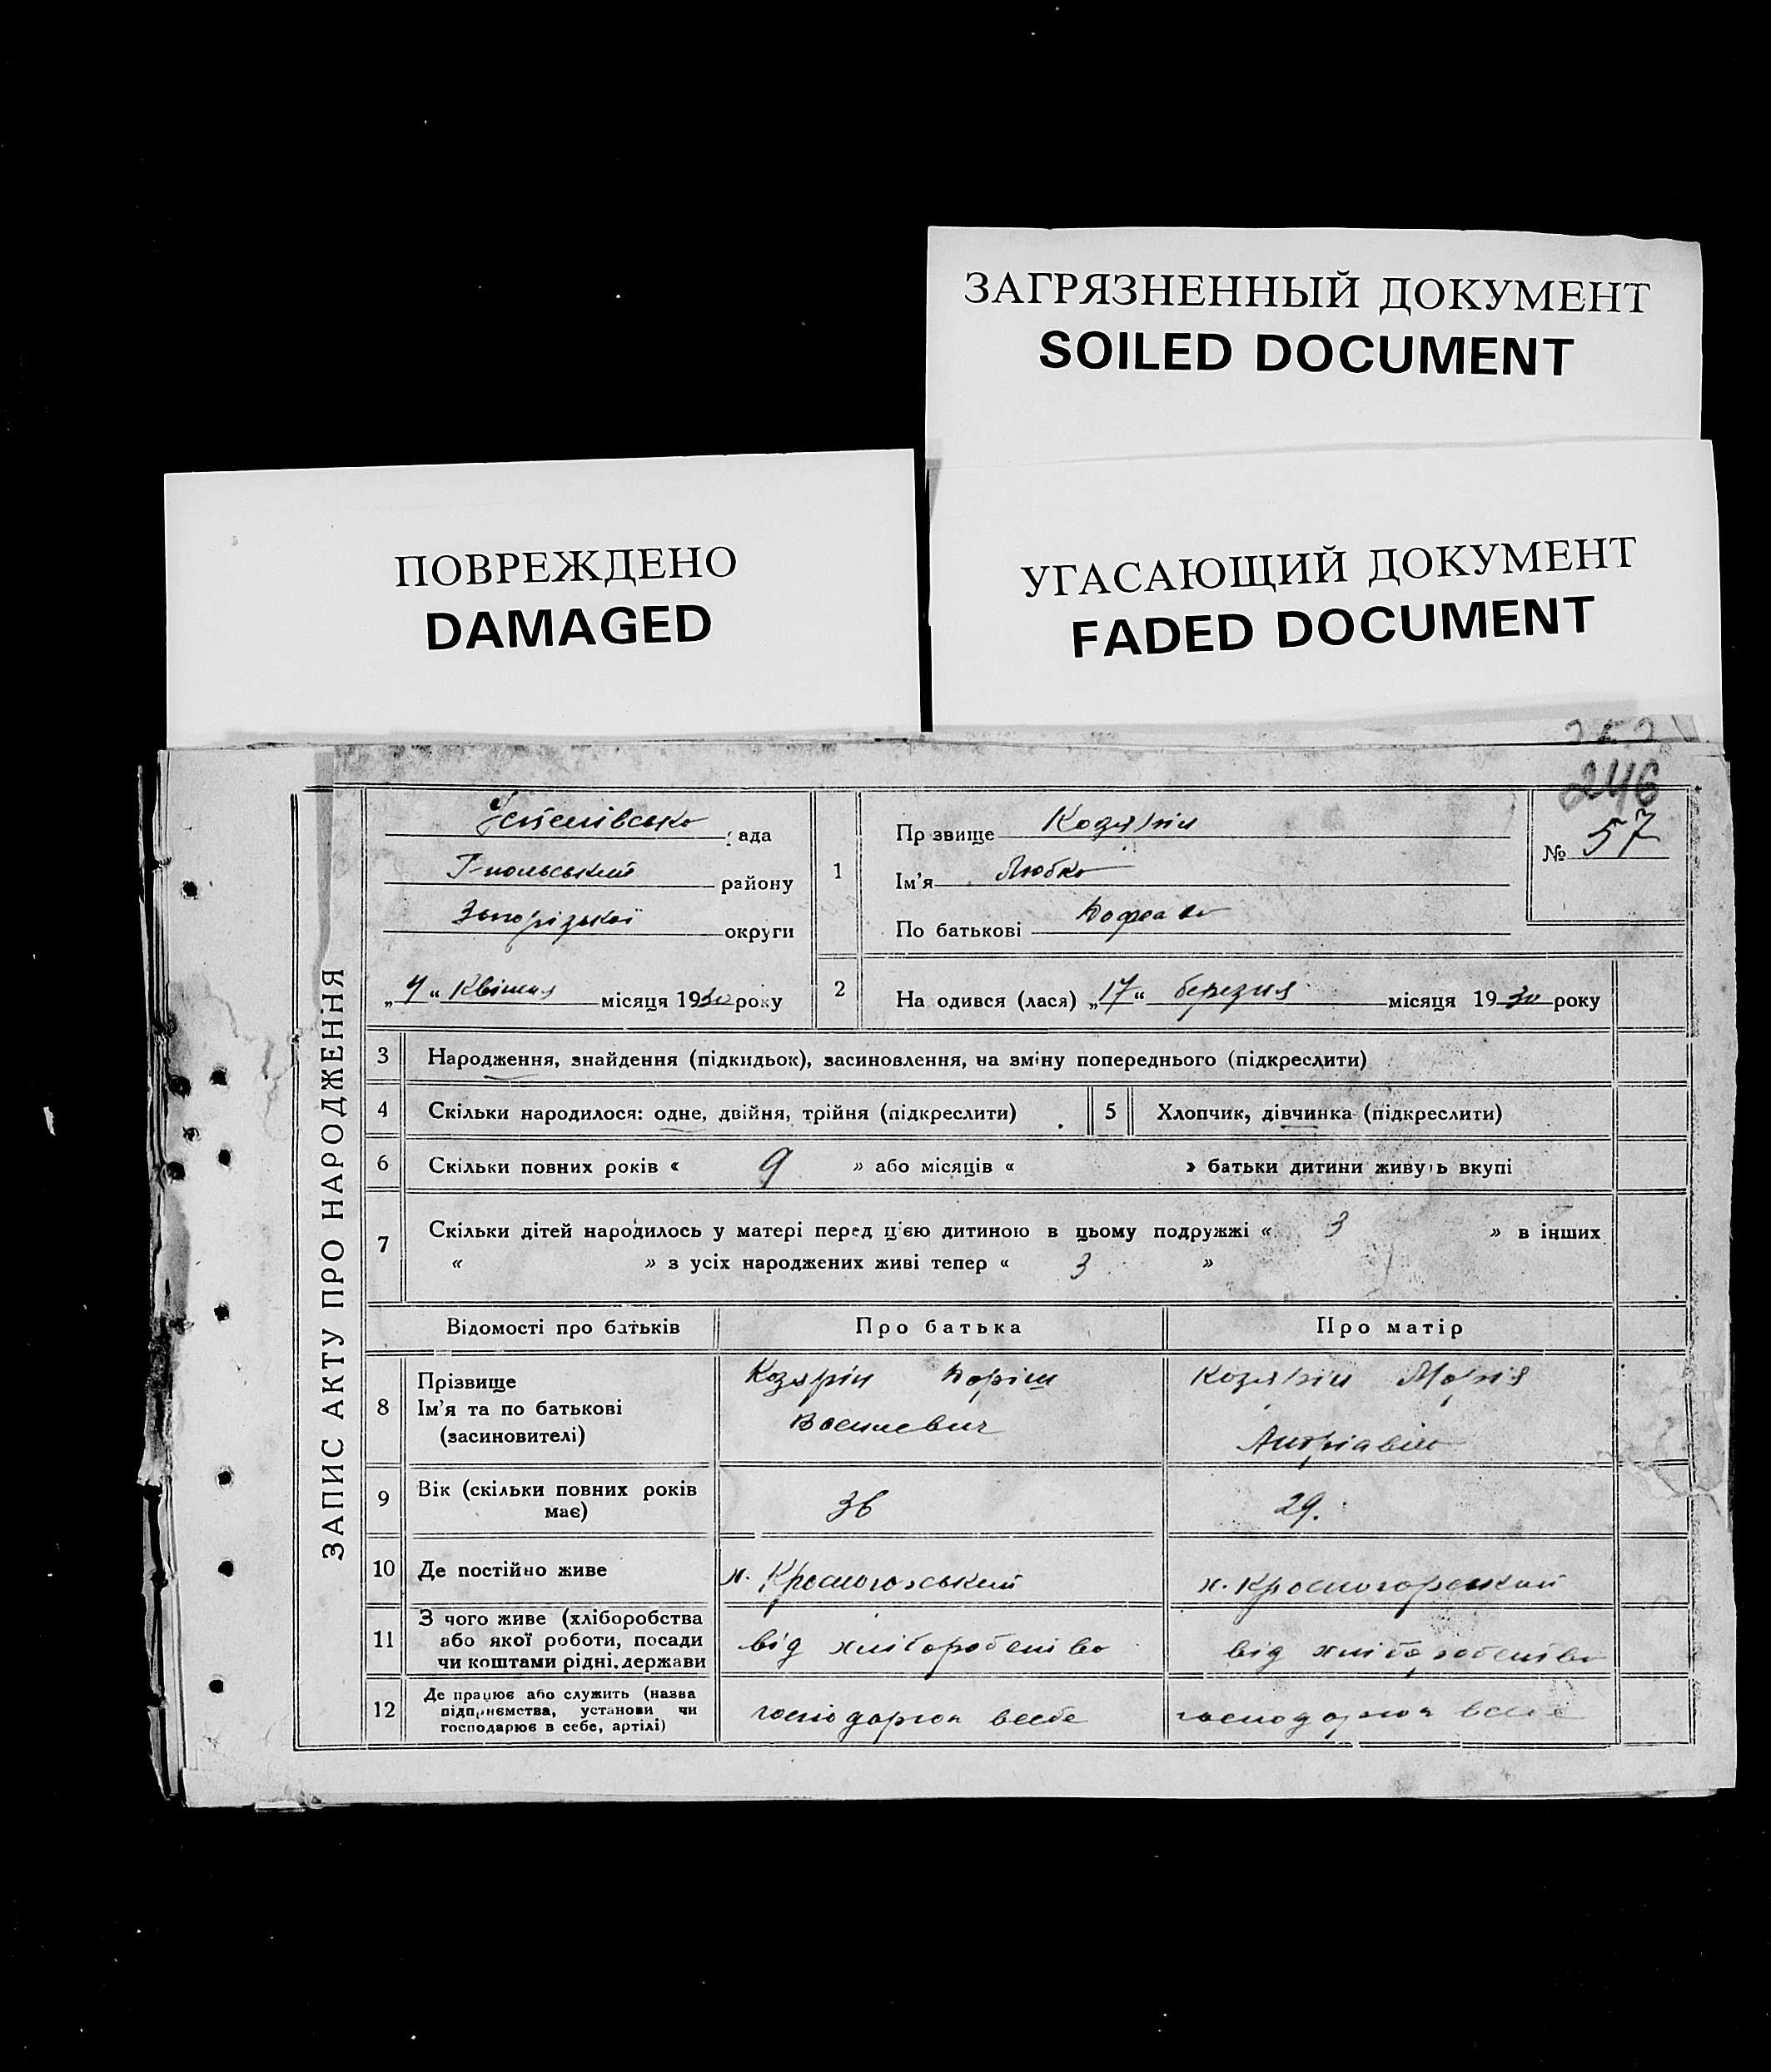 ЗАГРЯЗНЕННЫЙ ДОКУМЕНТ
SOILED DOCUMENT
ПОВРЕЖДЕНО
DAMAGED
УГАСАЮЩИЙ ДОКУМЕНТ
FADED DOCUMENT
246
ЗАПИС АКТУ ПРО НАРОДЖЕННЯ
ада
району
Запорізької округи
"4" Квітня місяця 1930 року
1 Пр звище Козярін
Ім'я Любка
По батькові
№ 57
2 На одився (лася) "17" березня місяця 1930 року
3 Народження, знайдення (підкидьок), засиновлення, на зміну попереднього (підкреслити)
4 Скільки народилося: одне, двійня, трійня (підкреслити)
5 Хлопчик, дівчинка (підкреслити)
6 Скільки повних років « 9 » або місяців « » батьки дитини живуть вкупі
7 Скільки дітей народилось у матері перед ц'єю дитиною в цьому подружжі « 3 » в інших
« » з усіх народжених живі тепер « 3 »
Відомості про батьків Про батька Про матір
8 Прізвище
Ім'я та по батькові
(засиновителі)
Козярін
Василевич
Козярін Марія
9 Вік (скільки повних років
має)
36
29.
10 Де постійно живе
х. Красногорський
х. Красногорський
11 З чого живе (хліборобства
або якої роботи, посади
чи коштами рідні, держави
від хліборобства
від хліборобства
12 Де працює або служить (назва
підприємства, установи чи
господарює в себе, артілі)